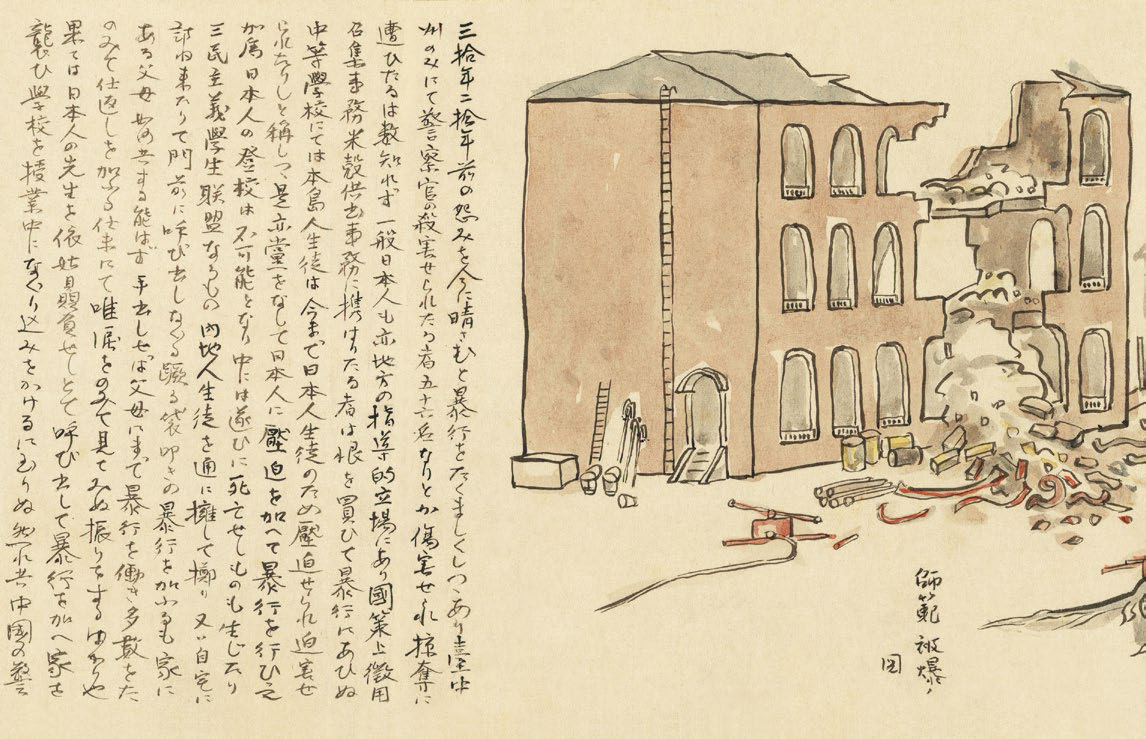 師範被爆ノ
図
三拾年二拾年前の怨みを今に晴さむと暴行をたくましくしつゝあり臺中
州のみにて警察官の殺害せられたる者五十六名なりとか傷害せられ掠奪に
遭ひたるは数知れず 一般日本人も亦地方の指導的立場にあり國策上徴用
召集事務米穀供出事務に携はりたる者は恨を買ひて暴行にあひぬ
中等學校にては本島人生徒は今まで日本人生徒のため壓迫せられ迫害せ
られたりしと称しつゝ是亦黨をなして日本人に壓迫を加へて暴行を行ひ之
が為日本人の登校は不可能となり中には遂ひに死亡せしものも生じたり
三民主義學生聯盟なるもの内地人生徒を通に擁して擲り又は自宅に
訪ね来たりて門前に呼び出しなぐる蹴る袋叩きの暴行を加ふるも家に
ある父母如何共する能はず 手出しせば父母にまで暴行を働き多数をた
のみて仕返しを加ふる仕末にて唯涙をのみて見てみぬ振りをするばかりや
果ては日本人の先生を依姑贔負せしとて呼び出して暴行を加へ家を
襲ひ學校を授業中になぐり込みをかけるに至りぬ 然れ共中國の警